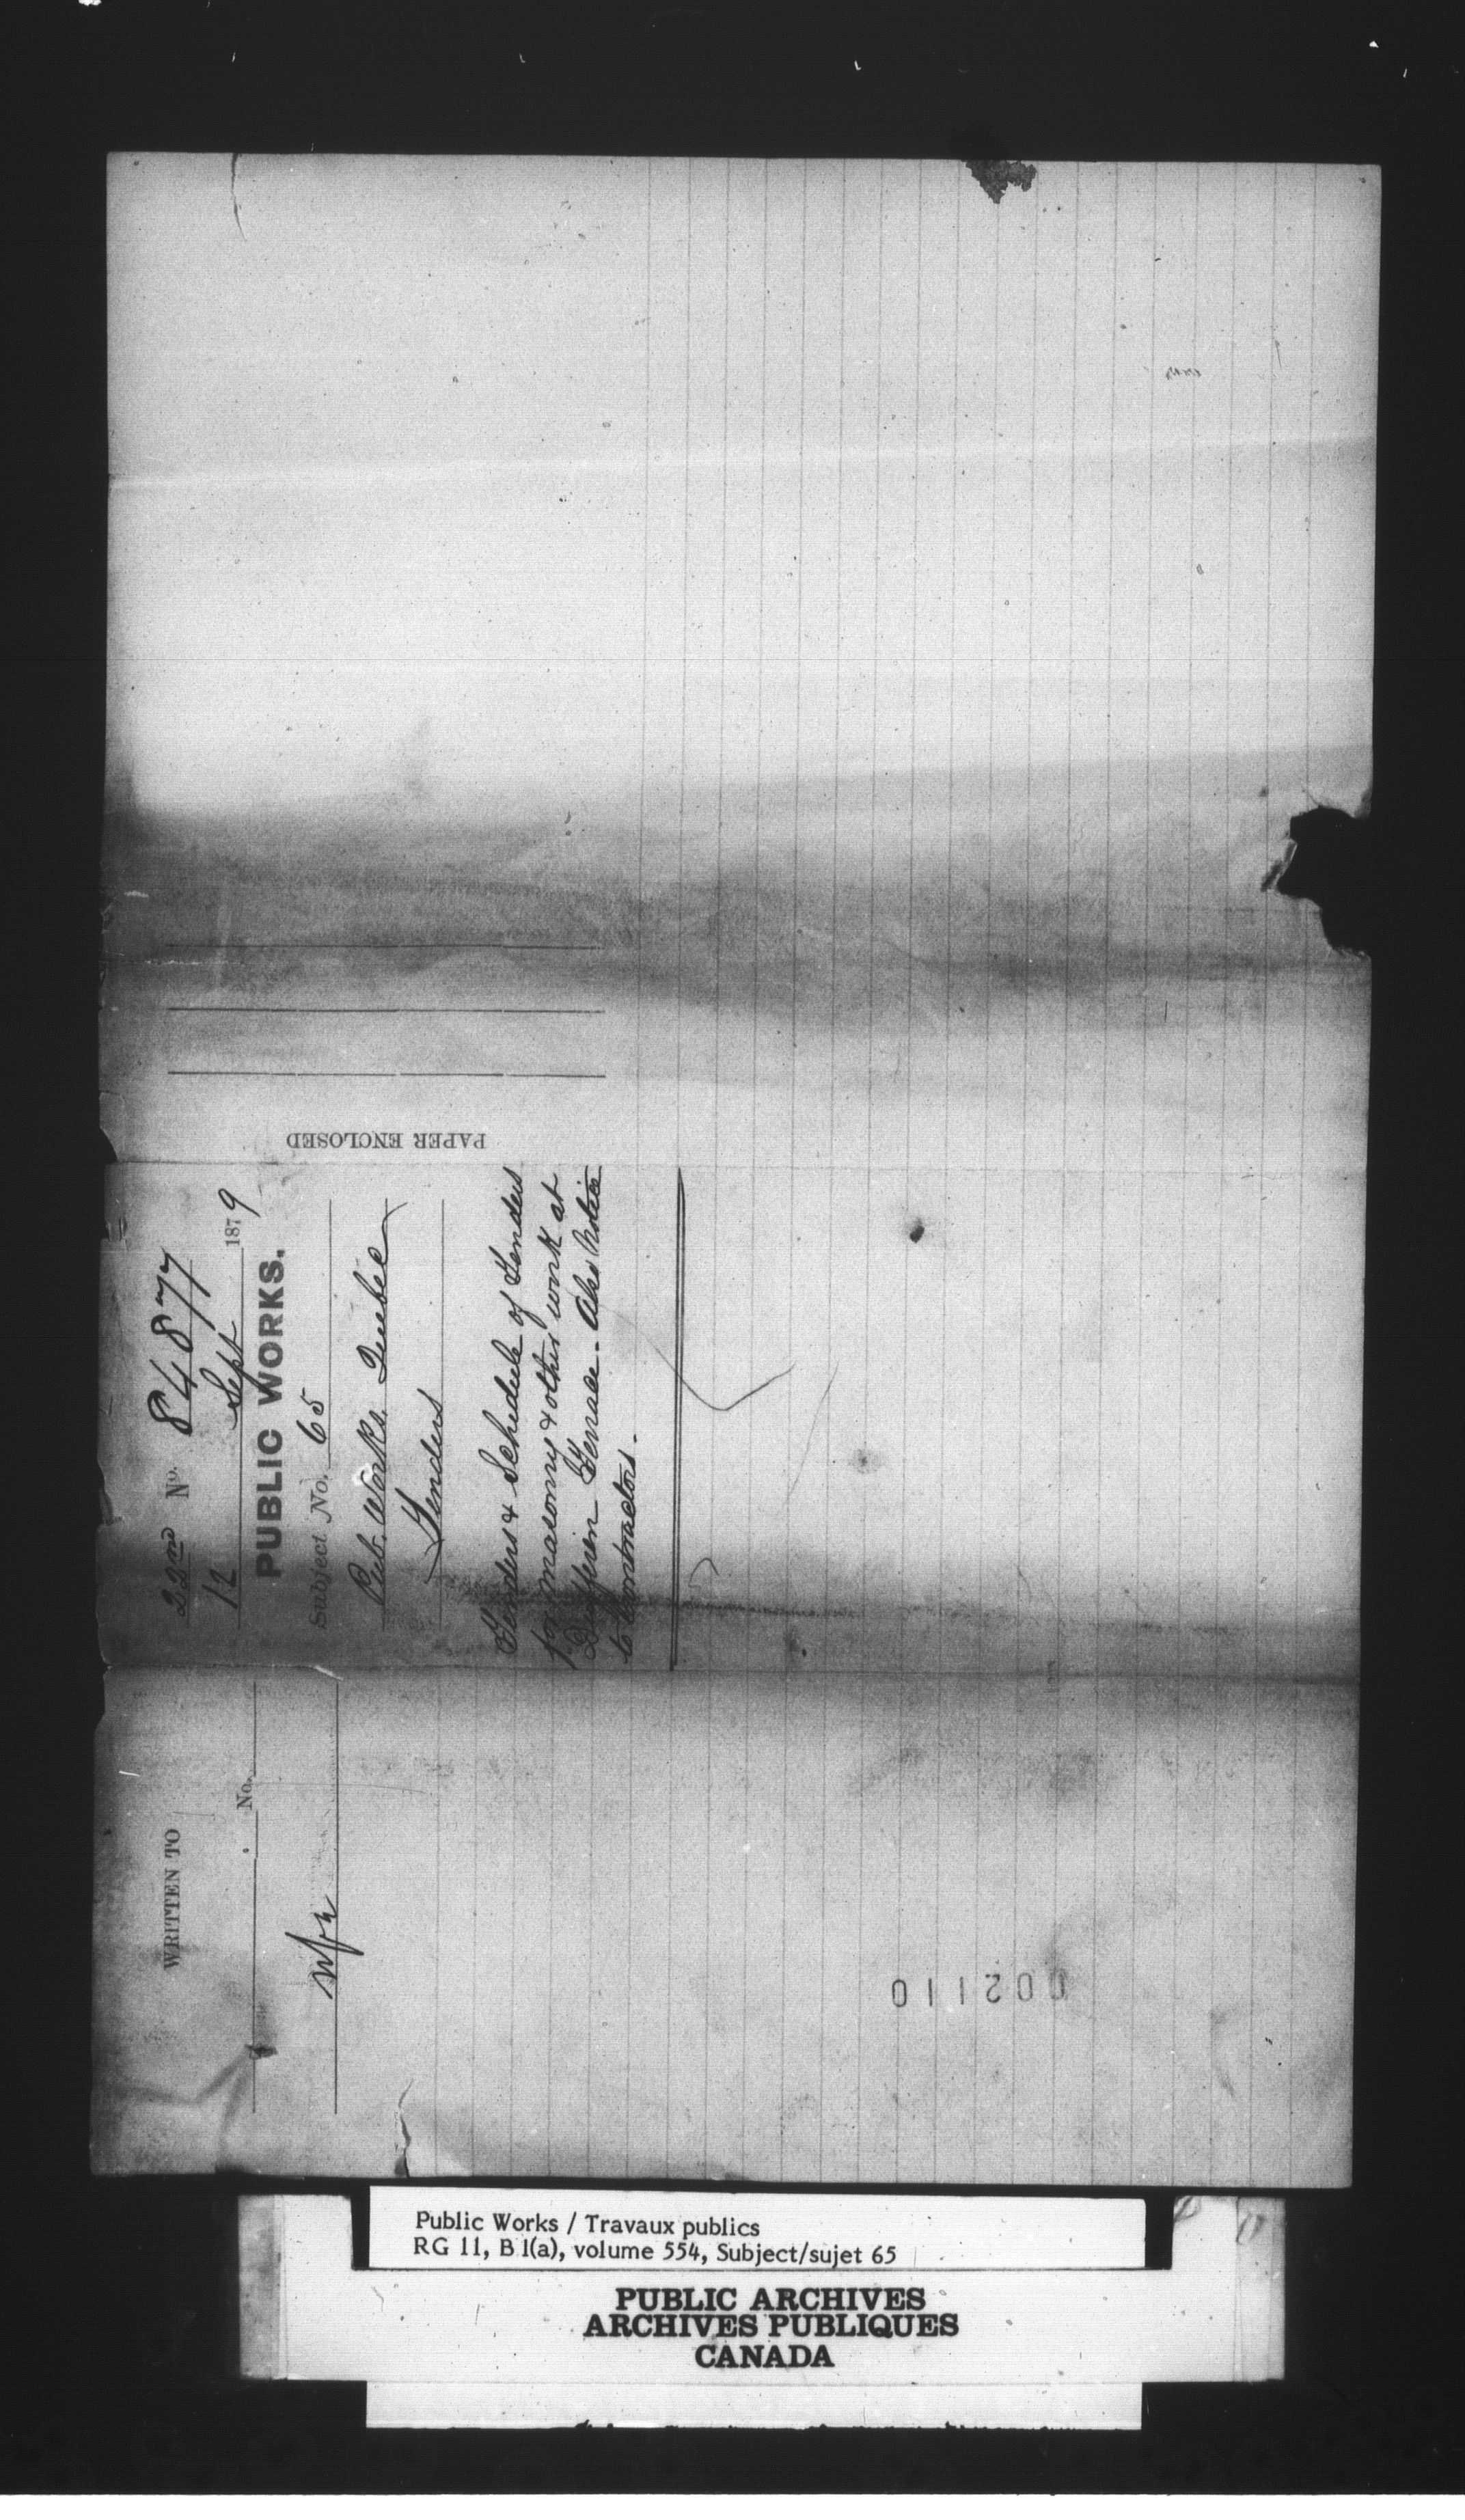 22nd No. 84877
12 Sept 1879
PUBLIC WORKS.
Subject No. 65
Pub. Works. Quebec
Tenders
Tenders & Schedule of Tenders
for masonry & other work at
Dufferin Terrace. Also Notice
to Contractors.
PAPER ENCLOSED
WRITTEN TO
No.
002110
Public Works / Travaux publics
RG 11, B 1(a), volume 554, Subject/sujet 65
PUBLIC ARCHIVES
ARCHIVES PUBLIQUES
CANADA